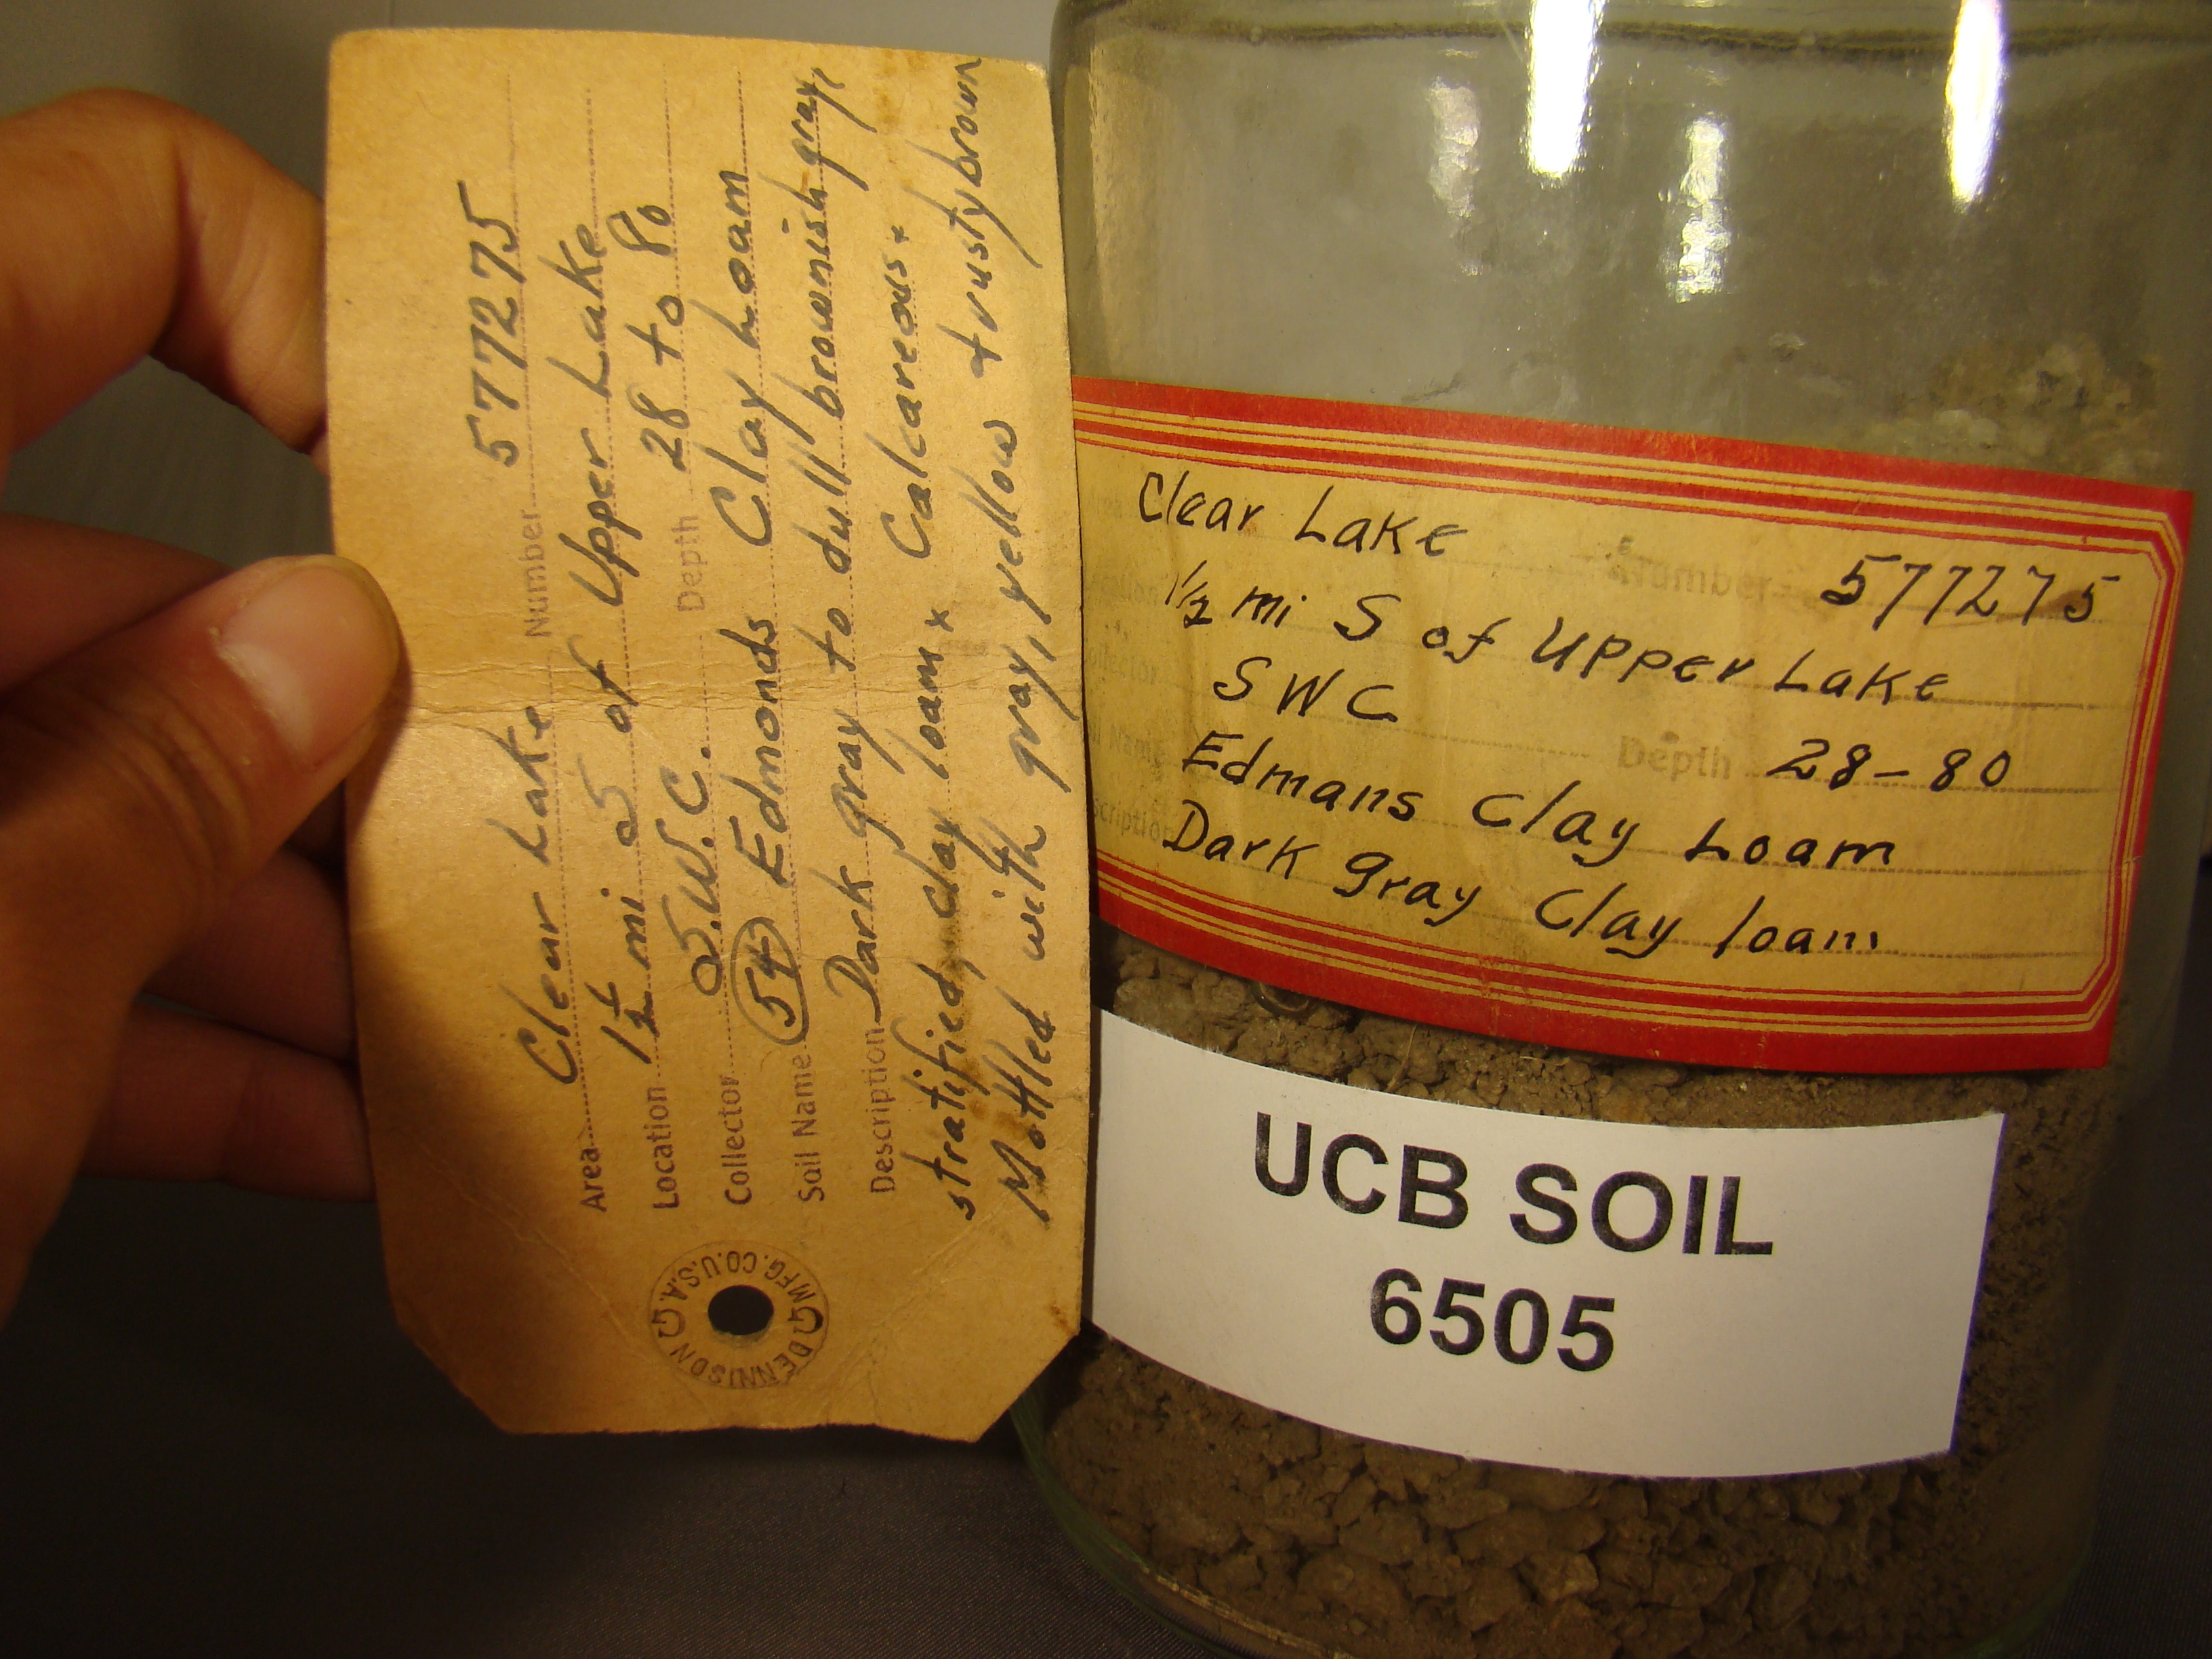 Area Clear Lake Number 577275
Location 1 1/2 mi S of Upper Lake
Collector S.W.C. Depth 28 to 80
Soil Name (54) Edmonds Clay Loam
Description Dark gray to dull brownish gray,
stratified, clay loam x Calcareous x
Mottled with gray, yellow + rusty brown
DENNISON MFG. CO. U.S.A.
Clear Lake Number 577275
1/2 mi S of Upper Lake
SWC Depth 28-80
Edmans Clay Loam
Dark gray Clay loam
UCB SOIL
6505